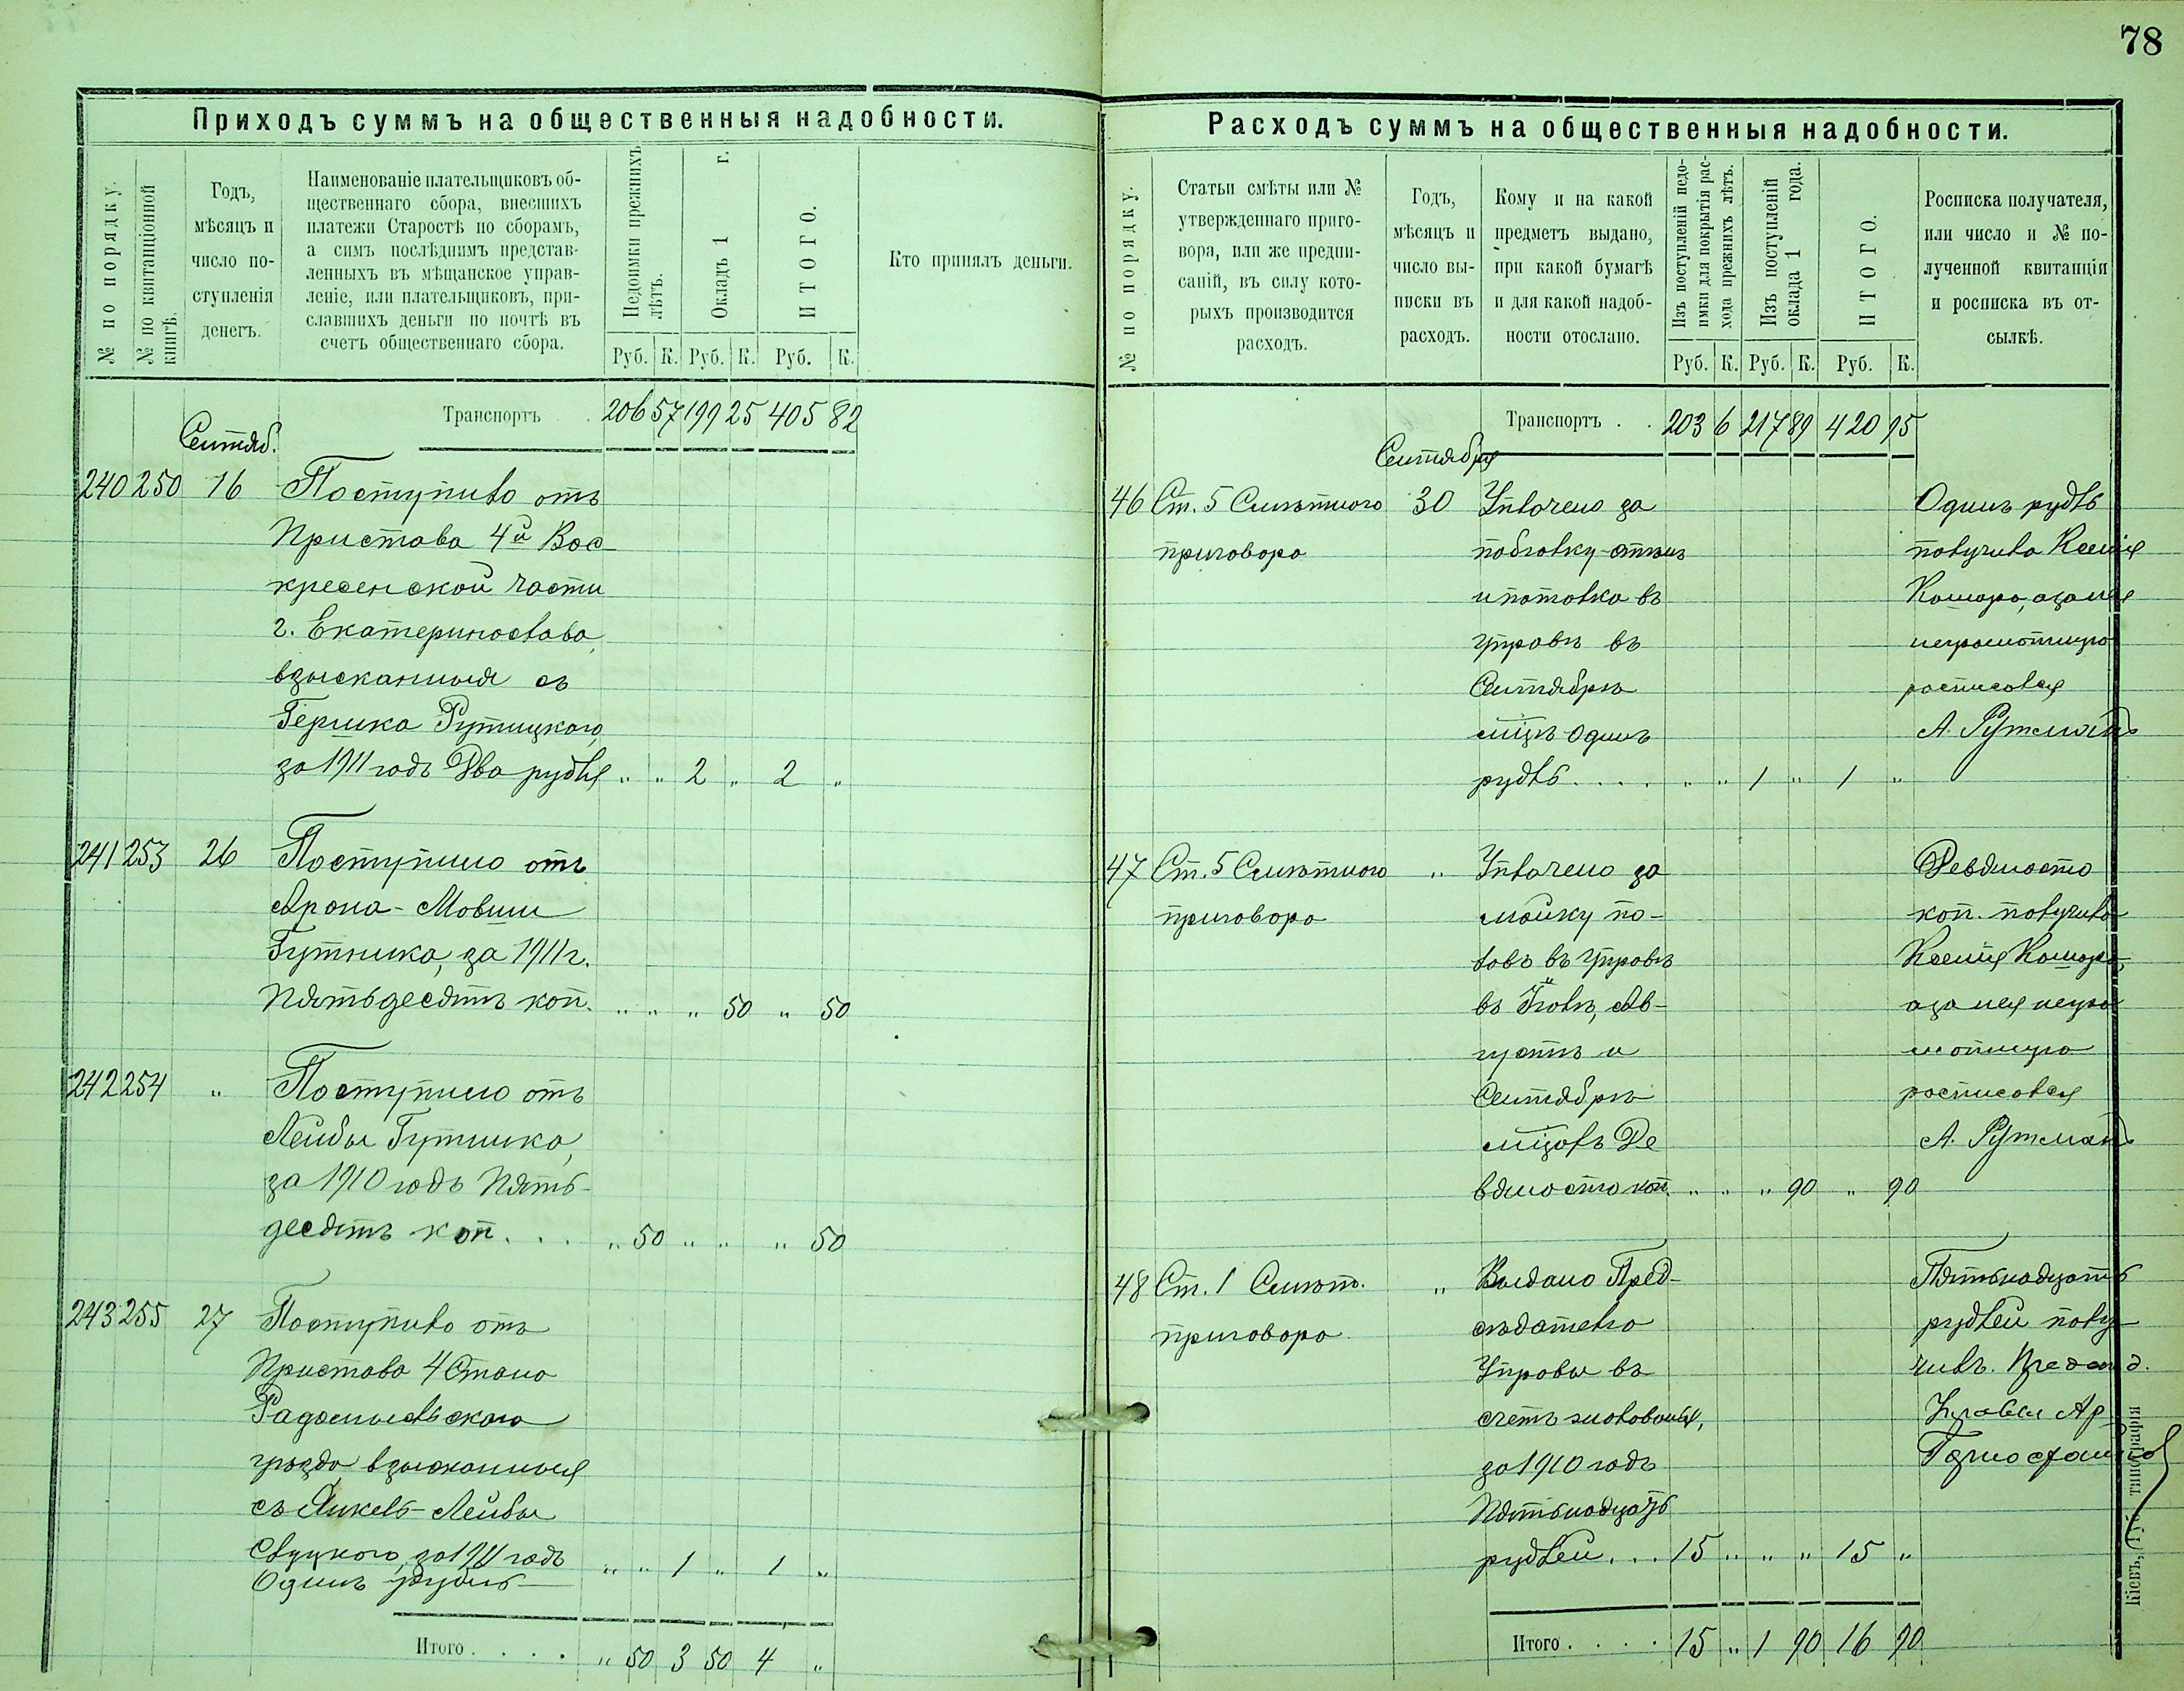 78
Приходъ суммъ на общественныя надобности.
№ по порядку.
№ по квитанціонной книгѣ.
Годъ,
мѣсяцъ и
число по-
ступленія
денегъ.
Наименованіе плательщиковъ об-
щественнаго сбора, внесшихъ
платежи Старостѣ по сборамъ,
а симъ послѣднимъ представ-
ленныхъ въ мѣщанское управ-
леніе, или плательщиковъ, при-
славшихъ деньги по почтѣ въ
счетъ общественнаго сбора.
Недоимки прежнихъ лѣтъ.
Окладъ 1 г.
ИТОГО.
Руб. К. Руб. К. Руб. К.
Кто принялъ деньги.
Транспортъ 206 57 199 25 405 82
Сентяб.
240 250 16 Поступило отъ
Пристава 4й Вос-
кресенской части
г. Екатеринослава,
взысканныя съ
Гершка Рутицкаго,
за 1911 годъ Два рубля " " 2 " 2 "
241 253 26 Поступило отъ
Арона-Мовши
Гутника, за 1911 г.
Пятьдесятъ коп. " " " 50 " 50
242 254 " Поступило отъ
Лейбы Гутника,
за 1910 годъ Пять-
десятъ коп. . . " 50 " " " 50
243 255 27 Поступило отъ
Пристава 4 Стана
Радомысльскаго
уѣзда взысканныя
съ Янкель-Лейбы
Слуцкого, за 1911 годъ
Одинъ рубль " " 1 " 1 "
Итого . . . . " 50 3 50 4 "
Расходъ суммъ на общественныя надобности.
№ по порядку.
Статьи смѣты или №
утвержденнаго приго-
вора, или же предпи-
саній, въ силу кото-
рыхъ производится
расходъ.
Годъ,
мѣсяцъ и
число вы-
писки въ
расходъ.
Кому и на какой
предметъ выдано,
при какой бумагѣ
и для какой надоб-
ности отослано.
Изъ поступленій недо-
имки для покрытія рас-
хода прежнихъ лѣтъ.
Изъ поступленій
оклада 1 года.
ИТОГО.
Руб. К. Руб. К. Руб. К.
Росписка получателя,
или число и № по-
лученной квитанціи
и росписка въ от-
сылкѣ.
Транспортъ . . 203 6 217 89 420 95
Сентября
46 Ст. 5 Смѣтного 30 Уплачено за
приговора
побѣлку стѣнъ
и потолка въ
Управѣ въ
Сентябрѣ
мцѣ Одинъ
рубль . . . . " " 1 " 1 "
Одинъ рубль
получила Ксенія
Комара, а за нея
неграмотную
росписался
А. Рутманъ
47 Ст. 5 Смѣтного " Уплачено за
приговора
мойку по-
ловъ въ Управѣ
въ Іюлѣ, Ав-
густѣ и
Сентябрѣ
мцовъ Де
вяносто коп. " " " 90 " 90
Девяносто
коп. получила
Ксенія Комара,
а за нея негра
мотную
росписался
А. Рутманъ
48 Ст. 1 Смѣт. " Выдано Пред-
приговора
сѣдателю
Управы въ
счетъ жалованья,
за 1910 годъ
Пятьнадцать
рублей . . . 15 " " " 15 "
Пятьнадцать
рублей полу-
чилъ. Предсѣд.
Управы Ар.
Итого . . . . 15 " 1 90 16 90
Кіевъ, типографія